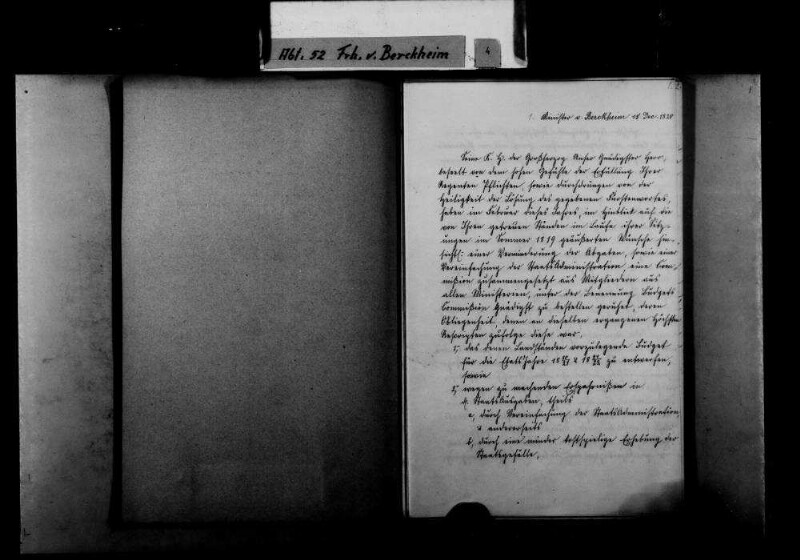 Abt. 52 Frh. v. Berckheim 4
Minister v. Berckheim 18 Dec. 1820
Seine K. H. der Großherzog Unser Gnädigster Herr,
beseelt von dem hohen Gefühle der Erfüllung Ihrer
Regenten Pflichten, sowie durchdrungen von der
Heiligkeit der Lösung des gegebenen Fürstenwortes,
haben im Februar dieses Jahres, im Hinblick auf die
von Ihren getreuen Ständen im Laufe ihrer Sitz-
ungen im Sommer 1819 geäußerten Wünsche hin-
sichtl: einer Verminderung der Abgaben, sowie einer
Vereinfachung der StaatsAdministration, eine Com-
mißion zusammengesetzt aus Mitgliedern aus
allen Ministerien, unter der Benennung Budgets
Commißion Gnädigst zu bestellen geruhet, deren
Obliegenheit, denen an dieselben ergangenen Höchsten
Rescripten zufolge diese war.
1, das denen Landständen vorzulegende Budget
für die EtatsJahre 18 & 18 zu entwerfen,
sowie
2, wegen zu machenden Ersparnißen in
d. StaatsAusgaben, theils
a, durch Vereinfachung der StaatsAdministration,
& andererseits
b, durch eine minder kostspielige Erhebung der
Staatsgefälle,